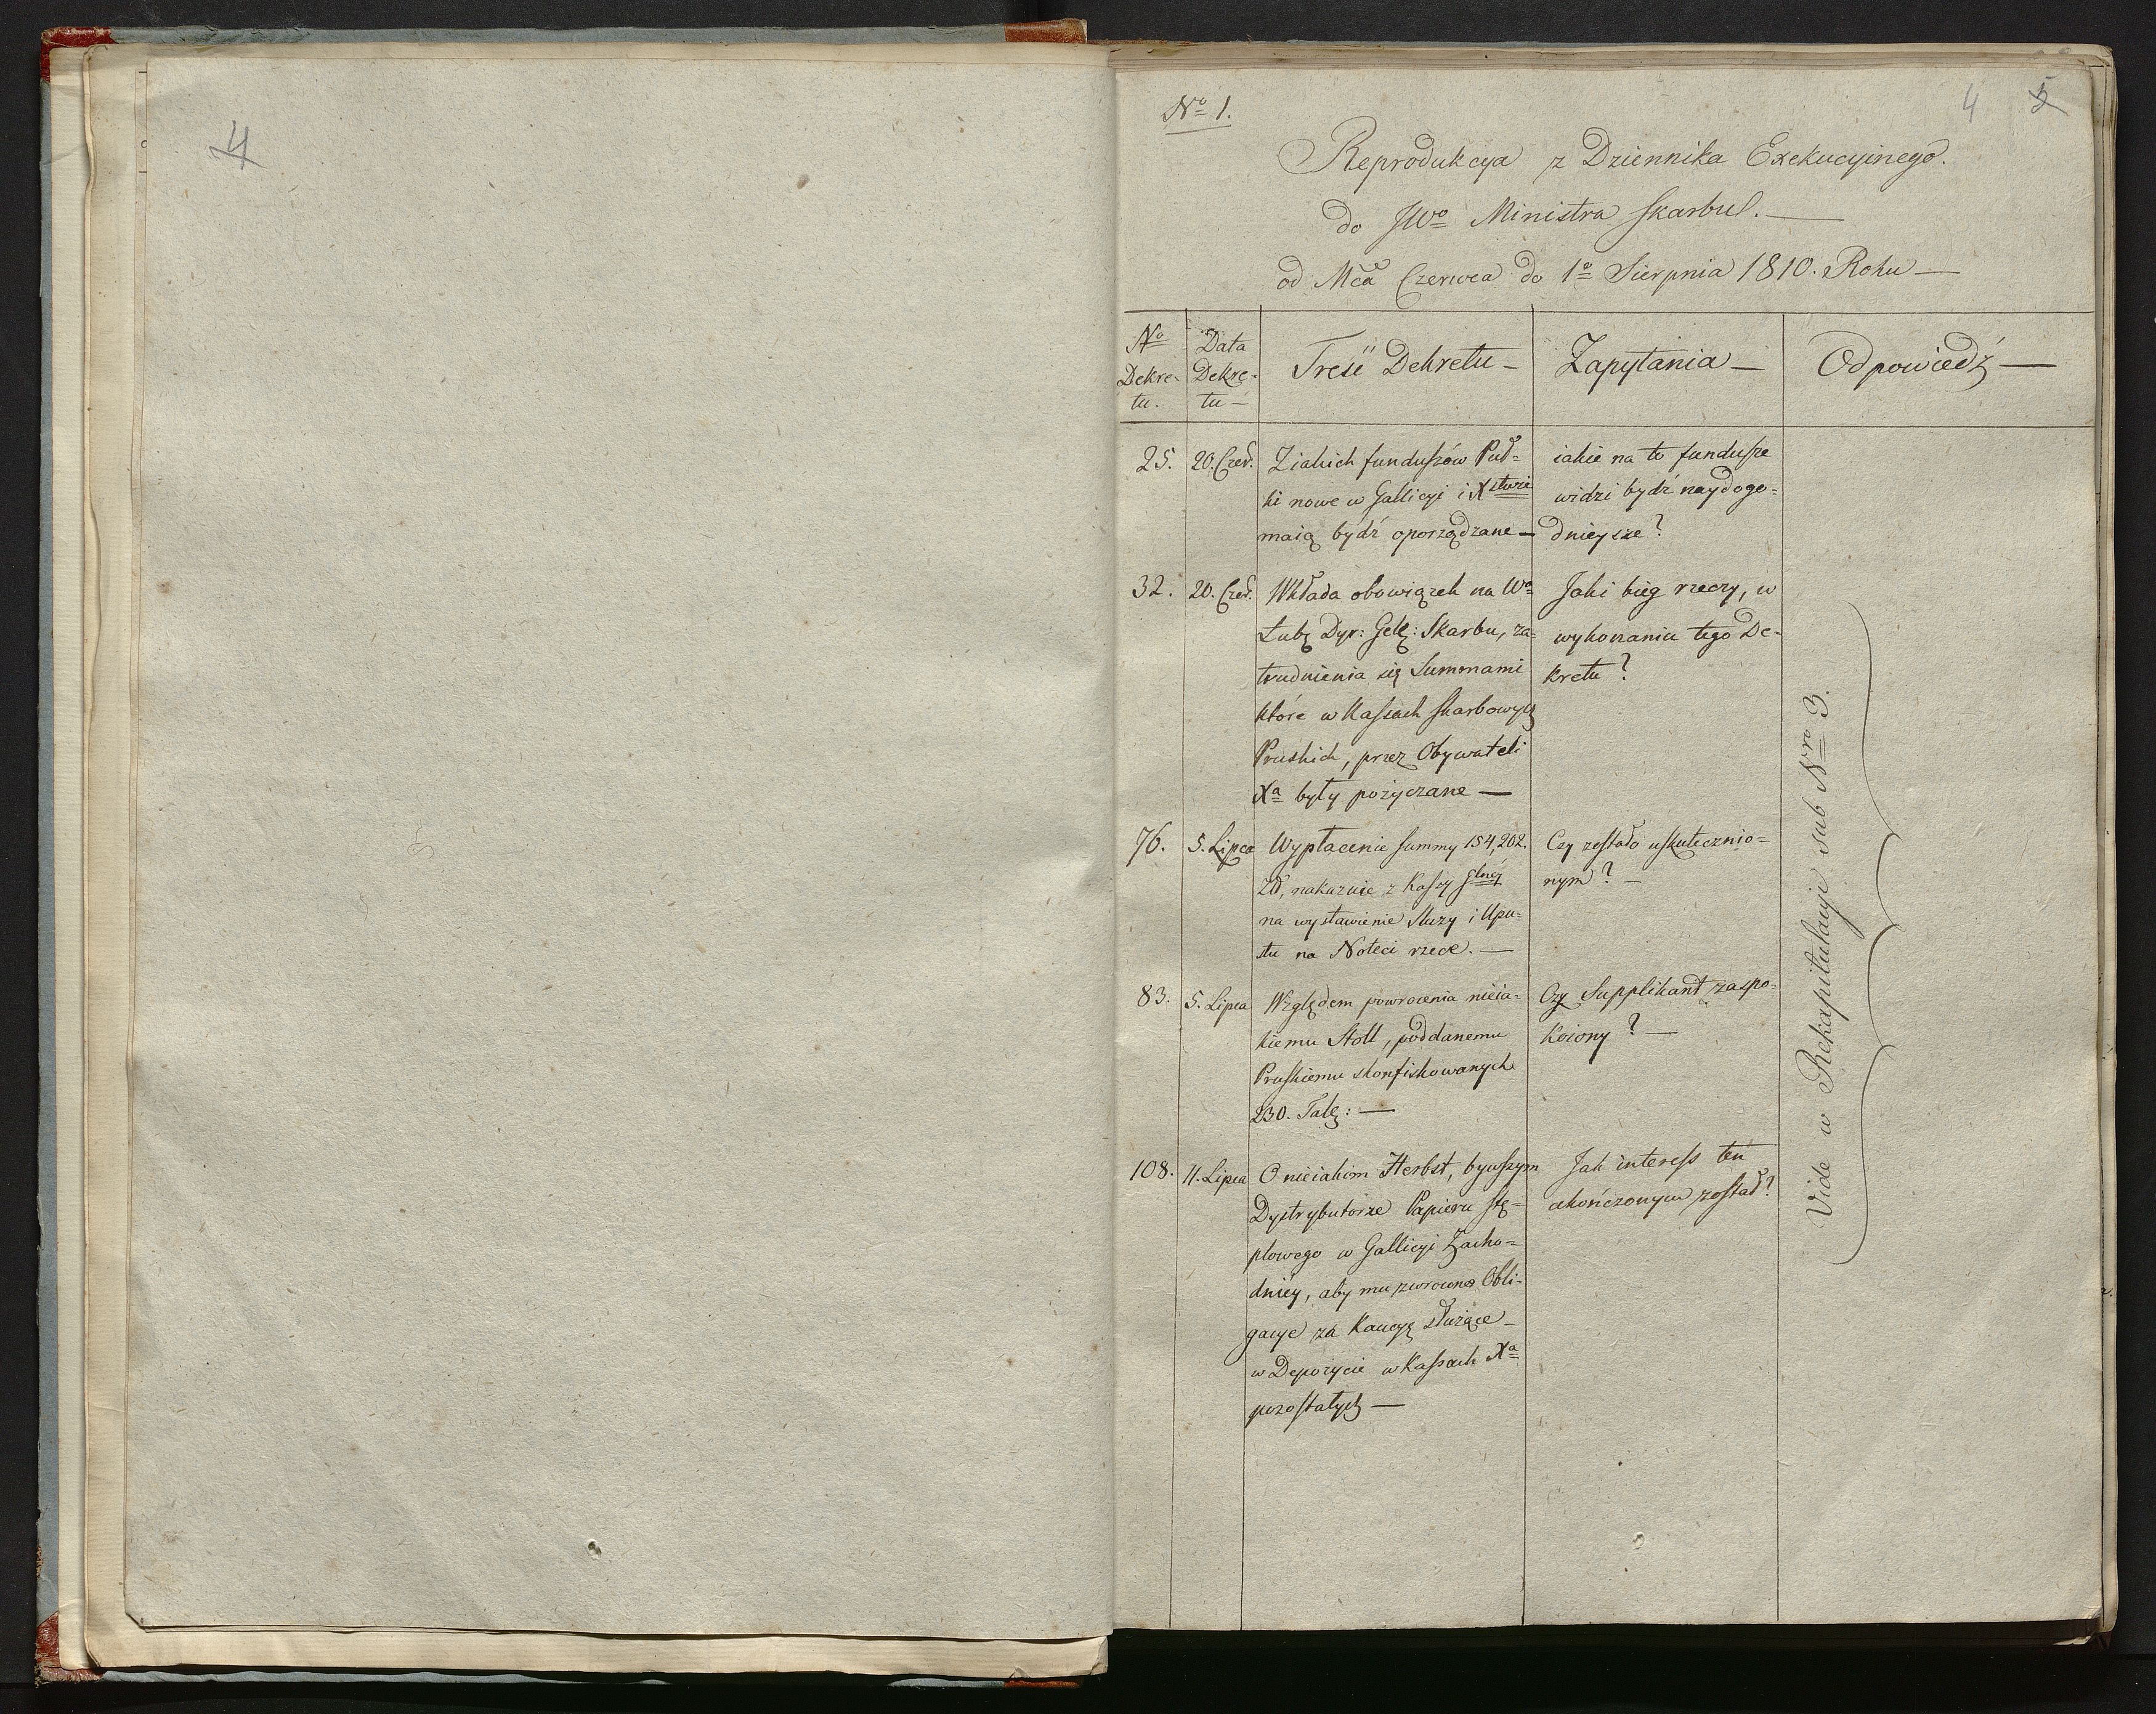 4
4 5
No 1.
Reprodukcya z Dziennika Exekucyinego.
do JWo Ministra Skarbu.—
od Mca Czerwca do 1o Sierpnia 1810. Roku—
No Dekre-
tu.
Data
Dekre-
tu—
Treść Dekretu—
Zapytania—
Odpowiedź—
25. 20. Czer.
Z iakich funduszów Puł=
ki nowe w Gallicyi i Xstwie
maią bydź oporządzane—
iakie na to fundusze
widzi bydź naydogo=
dnieysze?
32. 20. Czer.
Wkłada obowiązek na Wo
Łubę Dyr: Gełł: Skarbu, za=
trudnienia się Summami
które w Kassach skarbowych
Pruskich, przez Obywateli
Xa były pożyczane—
Jaki bieg rzeczy, w
wykonaniu tego De-
kretu?
76. 5. Lipca
Wypłacenie summy 154,202.
Zł, nakazuie z Kassy Głney
na wystawienie Sluzy i Upu=
stu na Noteci rzece.—
Czy zostało uskutecznio=
nym?—
83. 5. Lipca
Względem powrocenia nieia=
kiemu Stoll, poddanemu
Pruskiemu skonfiskowanych
230. Tal:—
Czy Supplikant zaspo=
koiony?—
108. 11. Lipca
O nieiakim Herbst, bywszym
Dystrybutorze Papieru stę=
plowego w Gallicyi Zacho=
dniey, aby mu zwrocono Obli-
gacye za Kaucyę służące—
w Depozycie w Kassach Xa
pozostałych—
Jak interess ten
ukończonym został?
Vide w Rekapitulacyi sub Nro 3.